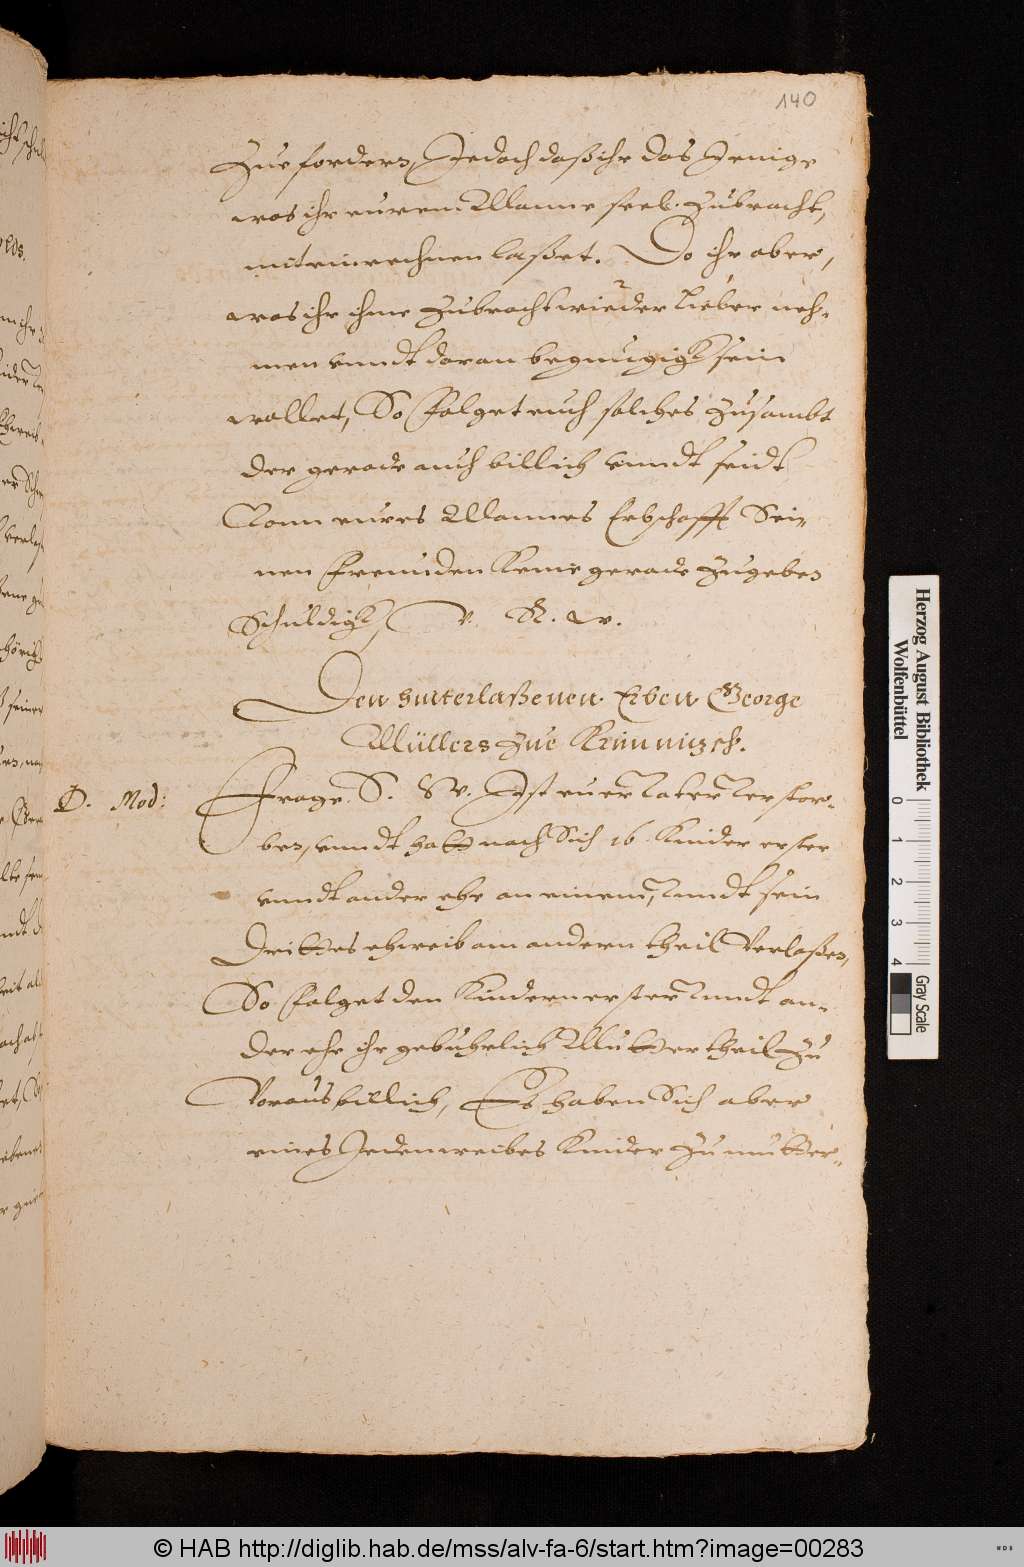 140
Zue fordern, Jedoch daß ihr das Jenige
was ihr eurem Manne seel. Zubracht,
mit einrechnen laßet. Do ihr aber,
was ihr ihme Zubracht wieder lieber neh-
men vnndt daran begnugigk sein
wollet, So folget euch solches Zusambt
der gerade auch billich vnndt seidt
Vonn eures Mannes Erbschafft Sei-
nen freunden Keine gerade Zugeben
Schuldigk, V. R. w.
Den hinterlaßenen Erben George
Müllers Zue
D. Mod:
Frage. D. W. Ist euer Vater Verstor-
ben, vnndt hatt nach Sich 16 Kinder erster
vnndt ander ehe an einem, Vnndt sein
Drittes eheweib am andern theil Verlaßen,
So folget den Kindern erster Vnndt an-
der ehe ihr gebuhrlich Mutter theil Zu
Voraus billich, Es haben Sich aber
eines Jeden weibes Kinder Zu mutter-
Herzog August Bibliothek
Wolfenbüttel
0 1 2 3 4
Gray Scale
© HAB http://diglib.hab.de/mss/alv-fa-6/start.htm?image=00283